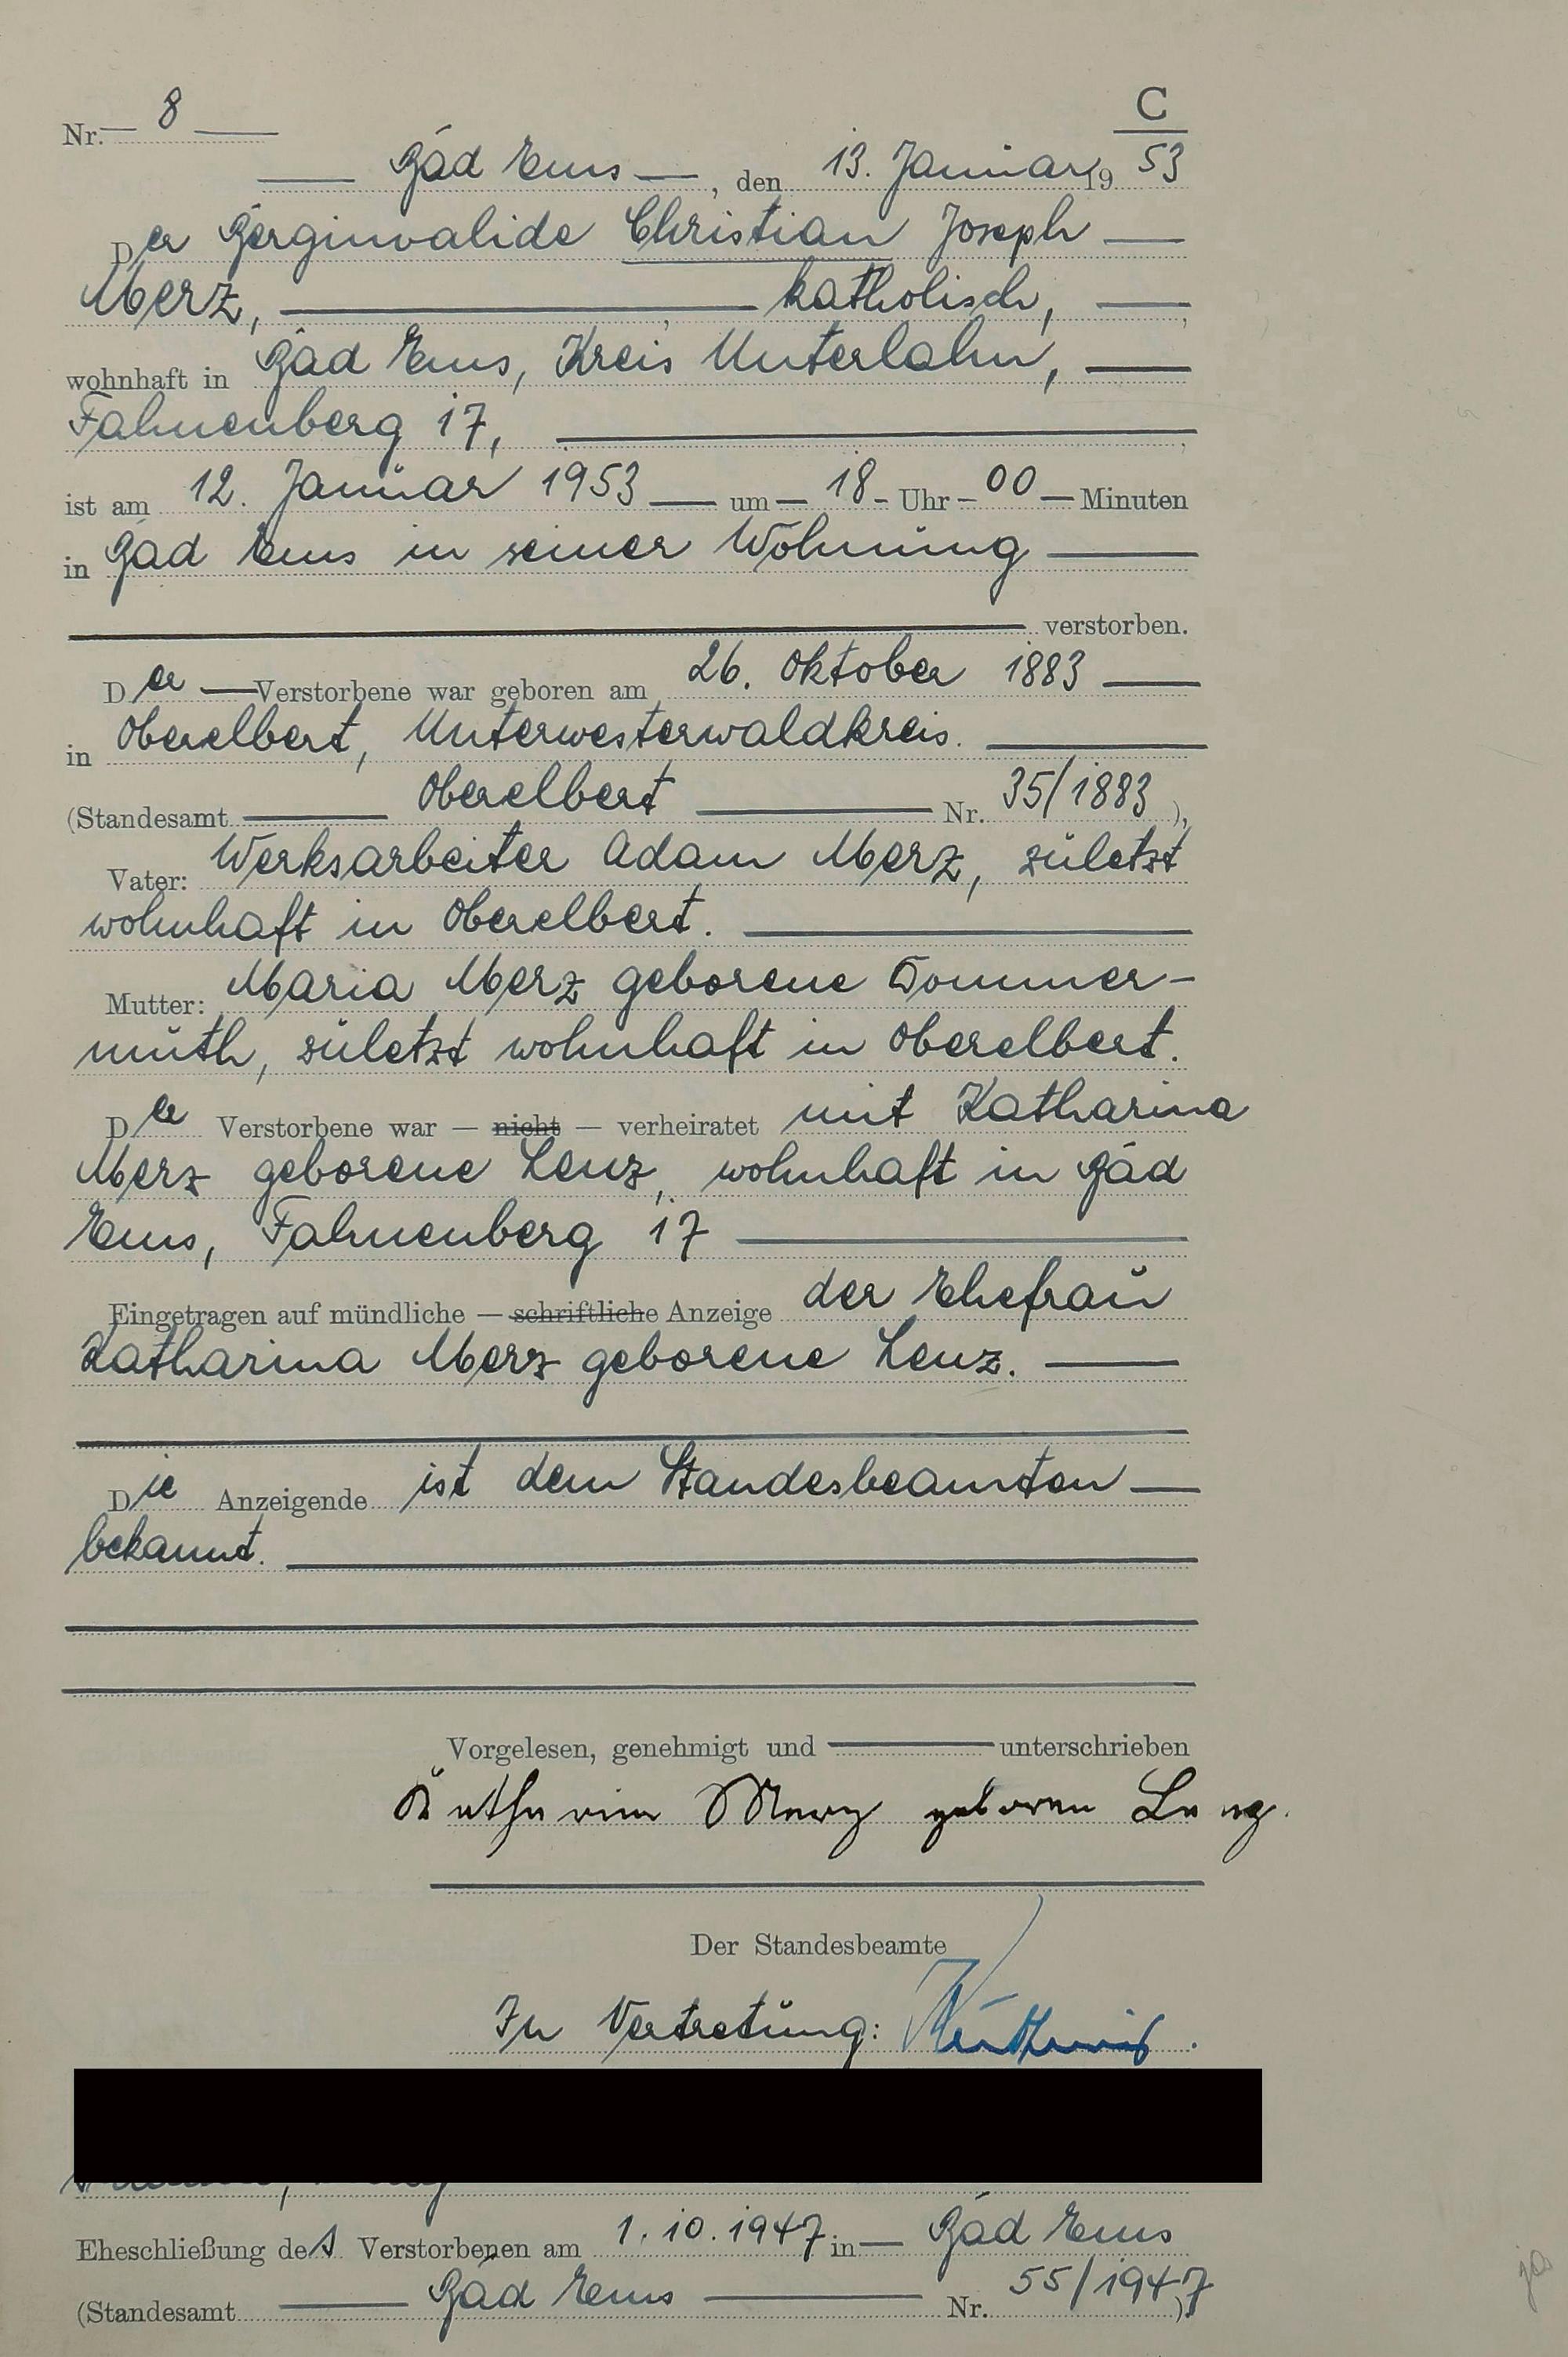 C
Nr. 8
Bad Ems, den 13. Januar 1953
Der Berginvalide Christian Joseph
Merz, katholisch,
wohnhaft in Bad Ems, Kreis Unterlahn,
Fahnenberg 17,
ist am 12. Januar 1953 um 18 Uhr 00 Minuten
in Bad Ems in seiner Wohnung
verstorben.
Der Verstorbene war geboren am 26. Oktober 1883
in Oberelbert, Unterwesterwaldkreis.
(Standesamt Oberelbert Nr. 35/1883),
Vater: Werksarbeiter Adam Merz, zuletzt
wohnhaft in Oberelbert.
Mutter: Maria Merz geborene Dommer-
muth, zuletzt wohnhaft in Oberelbert.
Der Verstorbene war — nicht — verheiratet mit Katharina
Merz geborene Lenz, wohnhaft in Bad
Ems, Fahnenberg 17
Eingetragen auf mündliche — schriftliche Anzeige der Ehefrau
Katharina Merz geborene Lenz.
Die Anzeigende ist dem Standesbeamten
bekannt.
Vorgelesen, genehmigt und unterschrieben
Katharina Merz geboren Lenz.
Der Standesbeamte
In Vertretung:
Eheschließung des Verstorbenen am 1.10.1947 in Bad Ems
(Standesamt Bad Ems Nr. 55/1947)